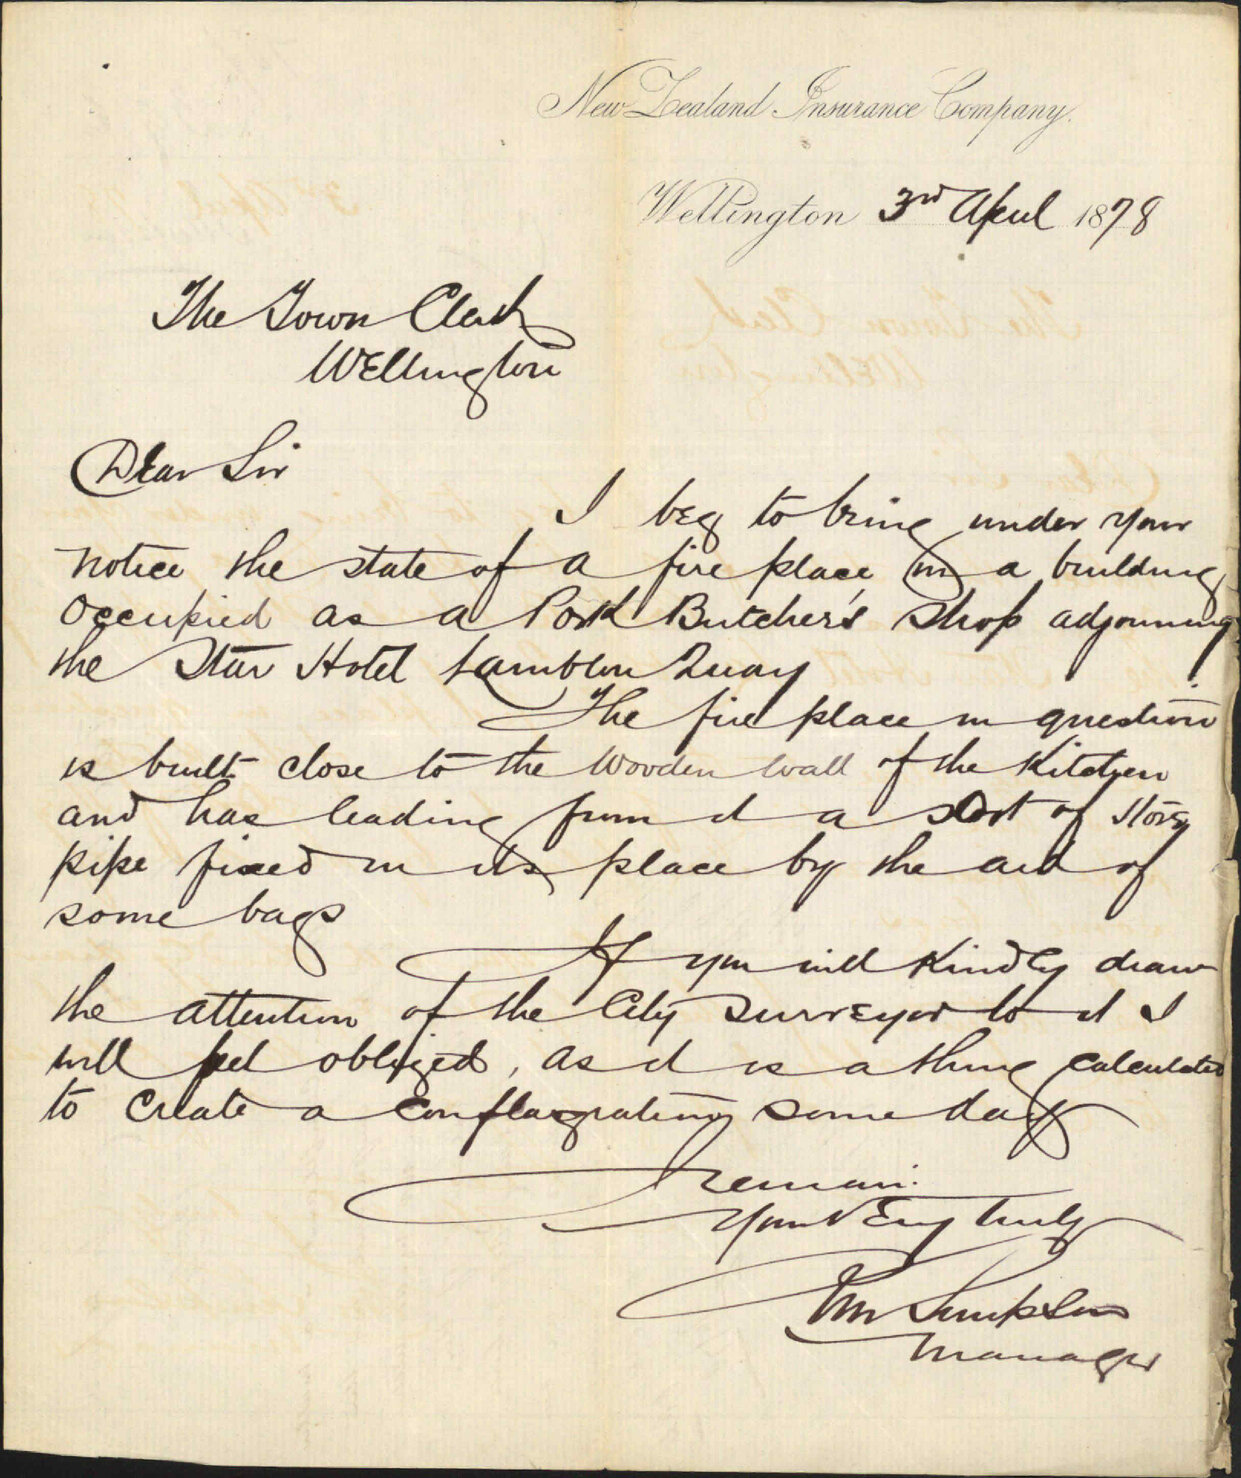 New Zealand Insurance Company.
Wellington 3rd April 1878
The Town Clerk
Wellington
Dear Sir
I beg to bring under your
notice the state of a fire place in a building
occupied as a Pork Butcher's Shop adjoining
the Star Hotel Lambton Quay
The fire place in question
is built close to the wooden wall of the Kitchen
and has leading from it a sort of Stove
pipe fixed in its place by the aid of
some bags
If you will Kindly draw
the attention of the City Surveyor to it I
will feel obliged, as it is a thing calculated
to create a conflagration some day
I remain.
Your Very truly
Simpson
Manager